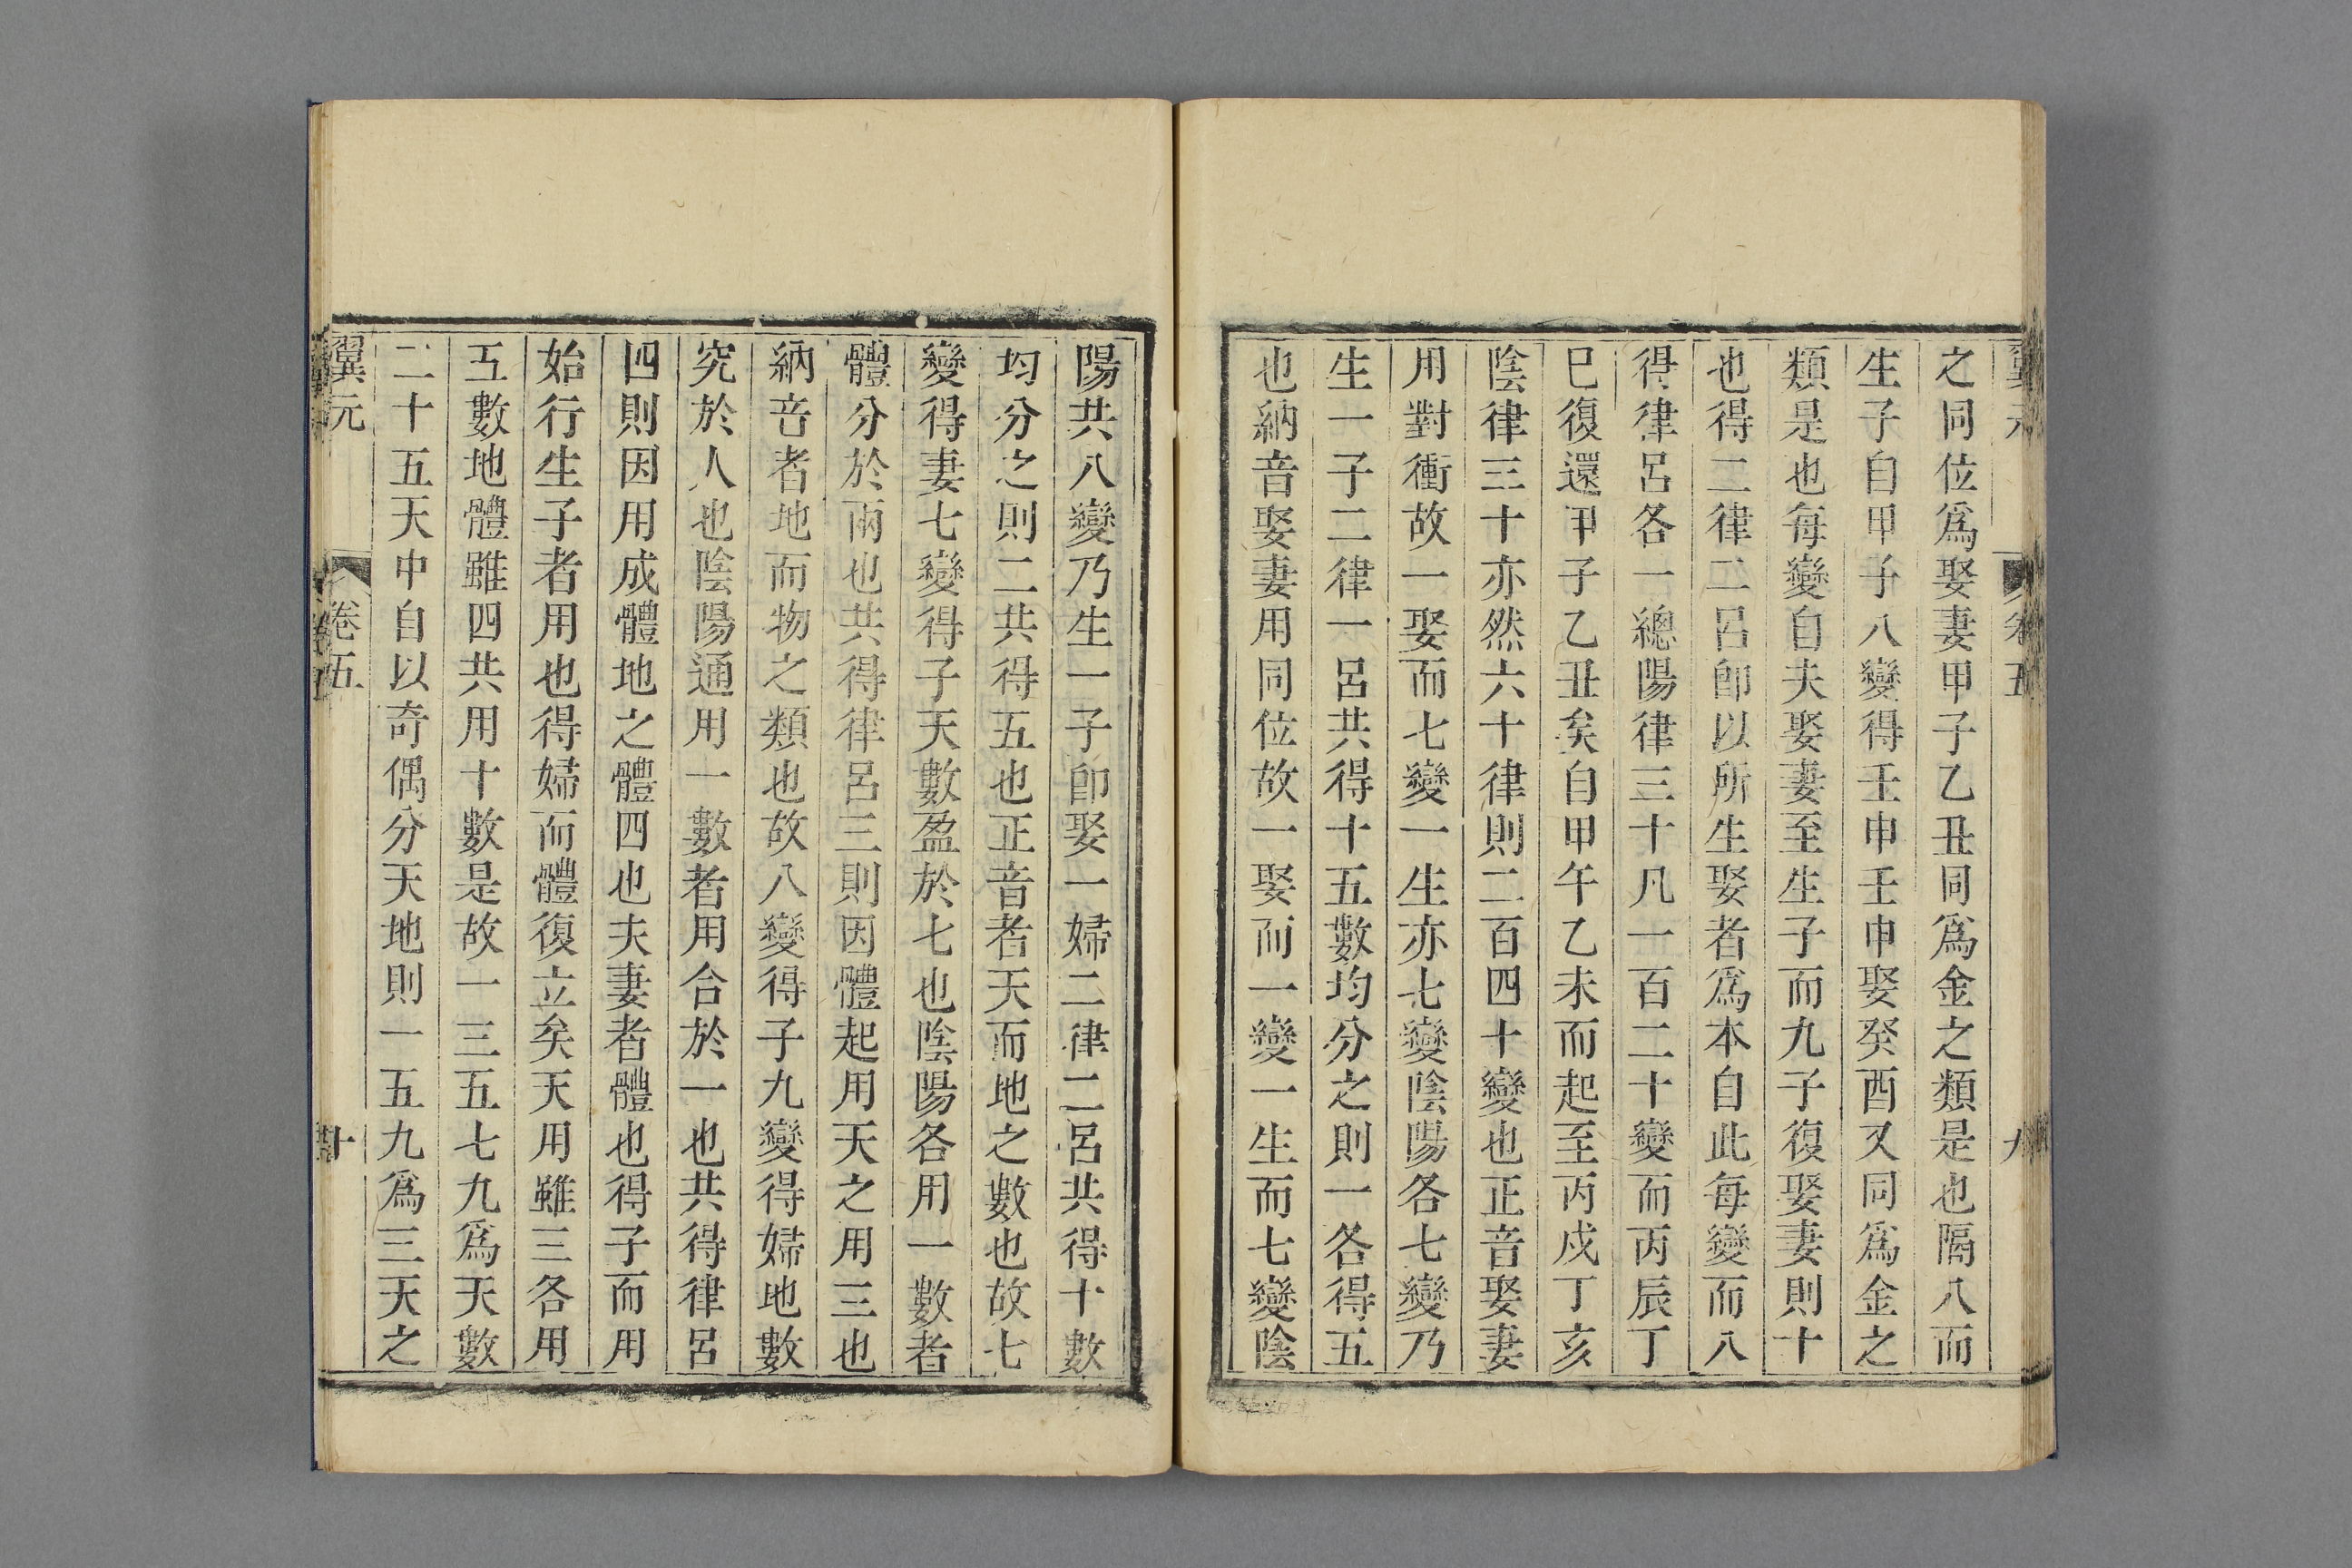 之同位爲娶妻甲子乙丑同爲金之類是也隔八而
生子自甲子八變得壬申壬申娶癸酉又同爲金之
類是也每變自夫娶妻至生子而九子復娶妻則十
也得二律二呂卽以所生娶者爲本自此每變而八
得律呂各一總陽律三十凡一百二十變而丙辰丁
巳復還甲子乙丑矣自甲午乙未而起至丙戌丁亥
陰律三十亦然六十律則二百四十變也正音娶妻
用對衝故一娶而七變一生亦七變陰陽各七變乃
生一子二律一呂共得十五數均分之則一各得五
也納音娶妻用同位故一娶而一變一生而七變陰
陽共八變乃生一子卽娶一婦二律二呂共得十數
均分之則二共得五也正音者天而地之數也故七
變得妻七變得子天數盈於七也陰陽各用一數者
體分於兩也共得律呂三則因體起用天之用三也
納音者地而物之類也故八變得子九變得婦地數
究於人也陰陽通用一數者用合於一也共得律呂
四則因用成體地之體四也夫妻者體也得子而用
始行生子者用也得婦而體復立矣天用雖三各用
五數地體雖四共用十數是故一三五七九爲天數
二十五天中自以奇偶分天地則一五九爲三天之
翼元
卷五
十